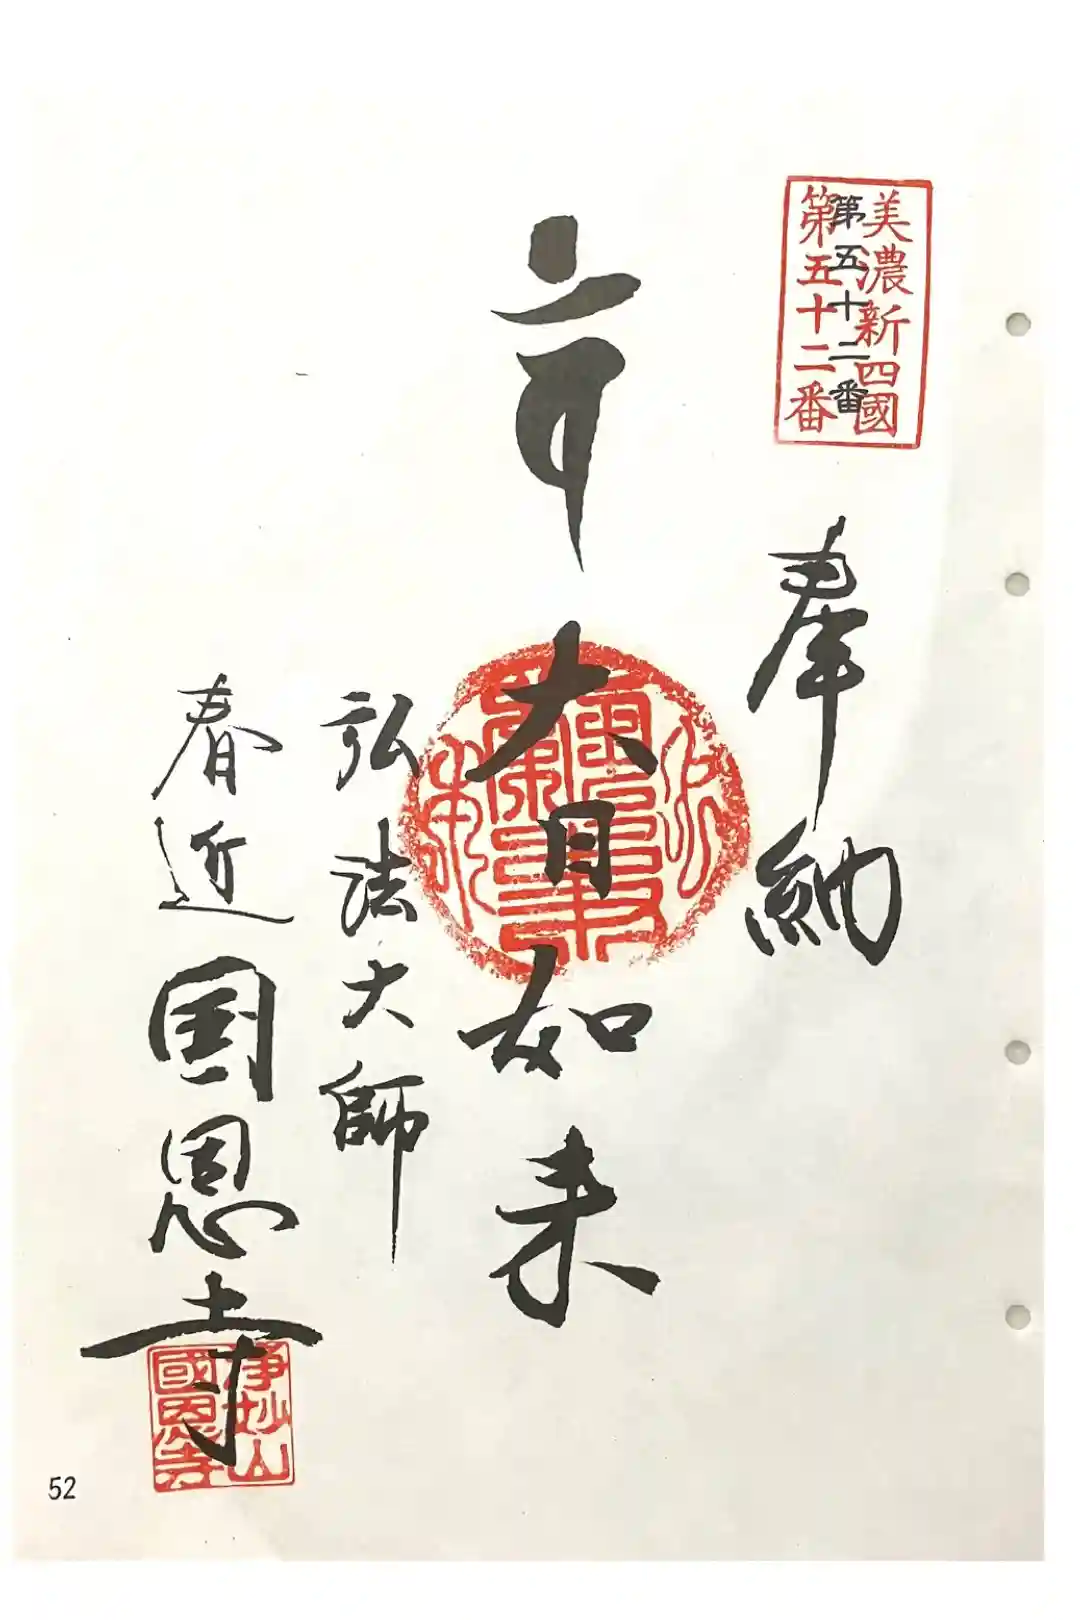 美濃新四國
第五十二番
第五十二番
奉納
大日如来
弘法大師
春近国恩寺
浄妙山
國恩寺
52